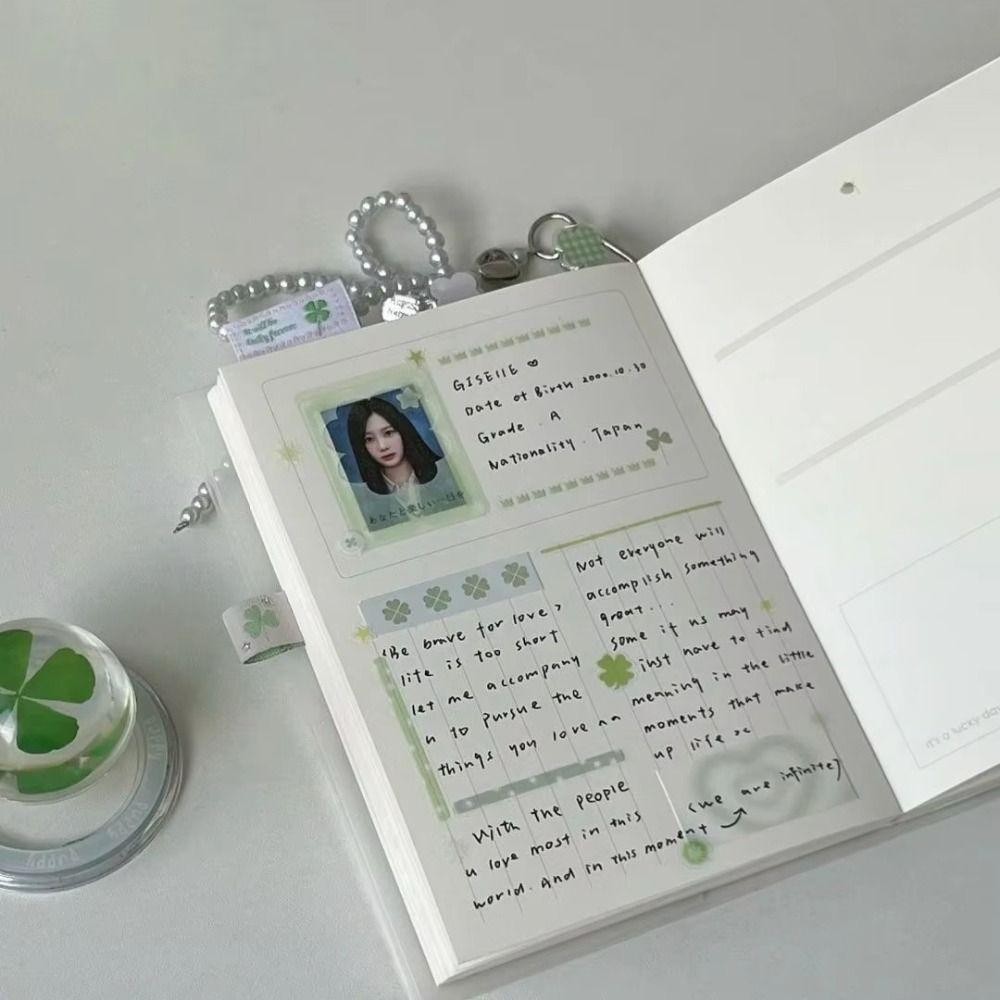 It will be
lucky forever
GISEllE ♡
Date of Birth 2000.10.30
Grade . A
Nationality . Japan
あなたと楽しい一日を
‹Be brave for love›
life is too short
let me accompany
u to pursue the
things you love
With the people
u love most in this
world. And in this moment
Not everyone will
accomplish something
great...
some if us may
just have to find
meaning in the little
moments that make
up life ><
(we are infinite)
It's a lucky day
PUPPY